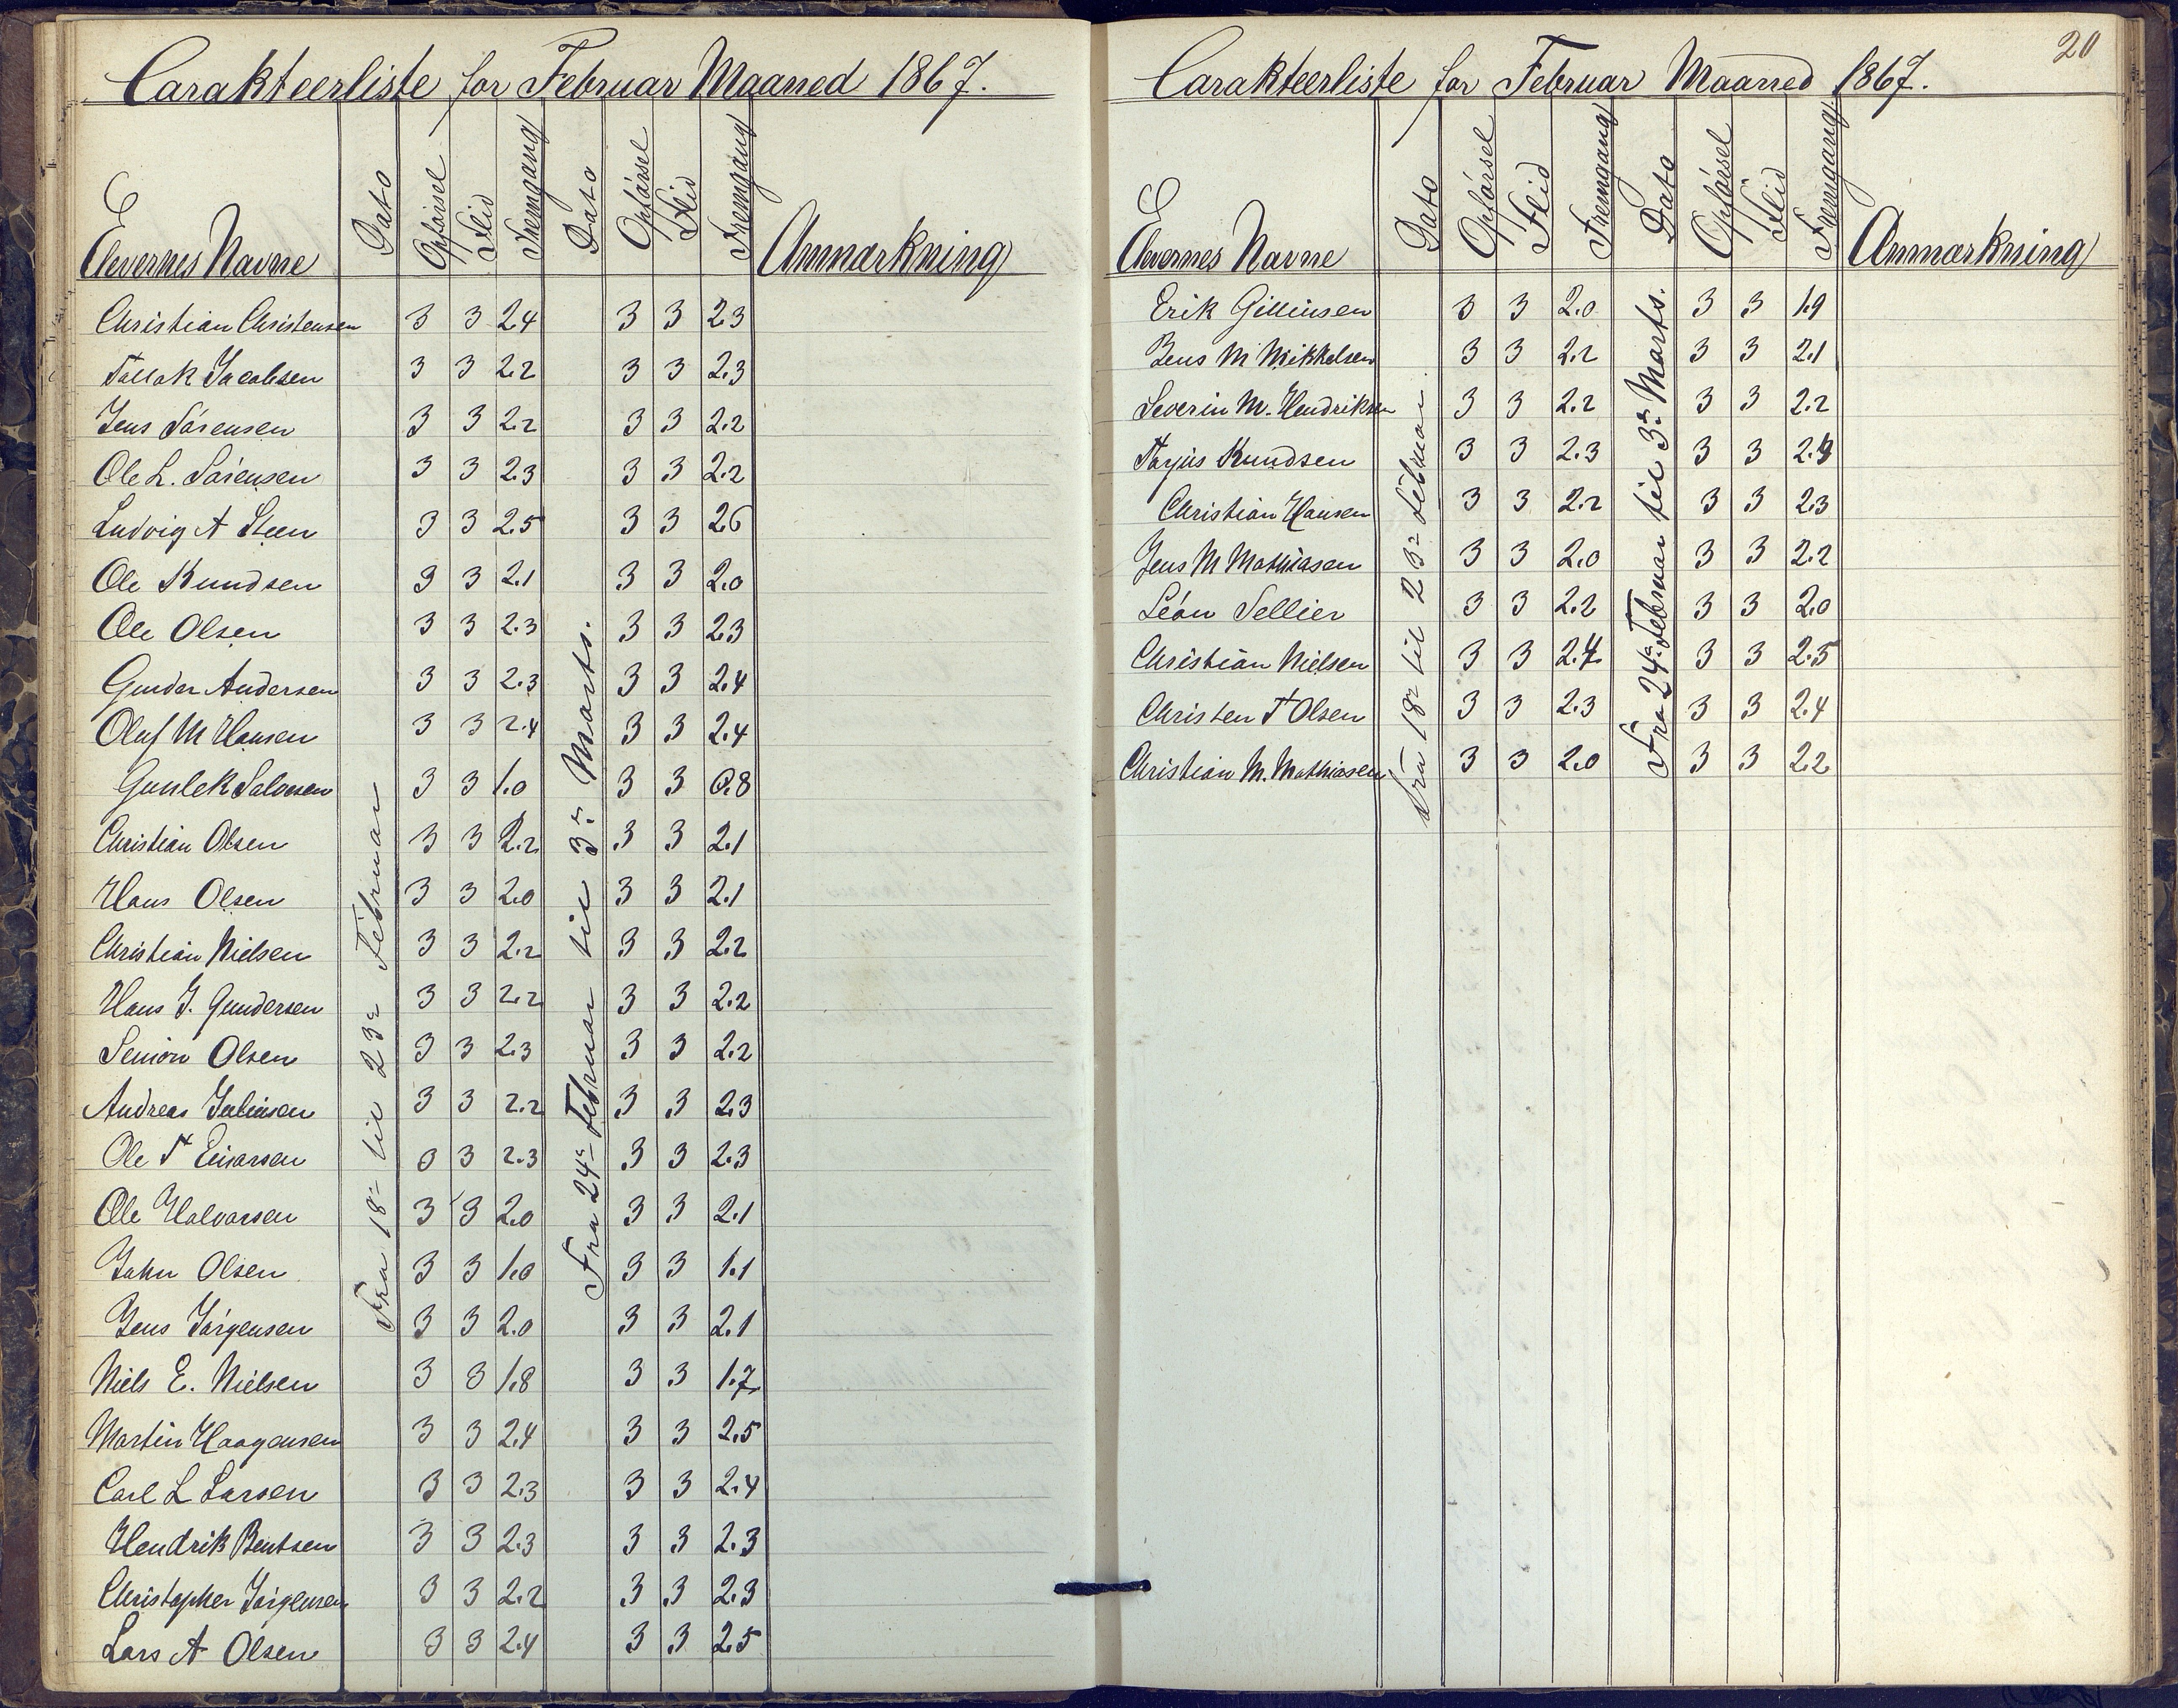 Carakteerliste for Februar Maaned 1867.
Elevernes Navne Dato Opførsel Flid Fremgang Dato Opførsel Flid Fremgang Anmærkning
Fra 18de til 23de Februar
Fra 24de Februar til 3de Marts.
Christian Christensen 3 3 2.4 3 3 2.3
Tallak Jacobsen 3 3 2.2 3 3 2.3
Jens Sørensen 3 3 2.2 3 3 2.2
Ole L. Sørensen 3 3 2.3 3 3 2.2
Ludvig A Steen 3 3 2.5 3 3 2.6
Ole Knudsen 3 3 2.1 3 3 2.0
Ole Olsen 3 3 2.3 3 3 2.3
Gunder Andersen 3 3 2.3 3 3 2.4
Oluf M Hansen 3 3 2.4 3 3 2.4
Gunlek Salvesen 3 3 1.0 3 3 0.8
Christian Olsen 3 3 2.2 3 3 2.1
Hans Olsen 3 3 2.0 3 3 2.1
Christian Nielsen 3 3 2.2 3 3 2.2
Hans J. Gundersen 3 3 2.2 3 3 2.2
Simon Olsen 3 3 2.3 3 3 2.2
Andreas Juliusen 3 3 2.2 3 3 2.3
Ole T 3 3 2.3 3 3 2.3
Ole Halvorsen 3 3 2.0 3 3 2.1
John Olsen 3 3 1.0 3 3 1.1
Jens Jørgensen 3 3 2.0 3 3 2.1
Niels E. Nielsen 3 3 1.8 3 3 1.7
Martin Haagensen 3 3 2.4 3 3 2.5
Carl L Larsen 3 3 2.3 3 3 2.4
Hendrik Bentsen 3 3 2.3 3 3 2.3
Christopher Jørgensen 3 3 2.2 3 3 2.3
Lars A Olsen 3 3 2.4 3 3 2.5
20
Carakteerliste for Februar Maaned 1867.
Elevernes Navne Dato Opførsel Flid Fremgang Dato Opførsel Flid Fremgang Anmærkning
Fra 18de til 23de Februar
Fra 24de Februar til 3de Marts.
Erik 3 3 2.0 3 3 1.9
Jens M Mikkelsen 3 3 2.2 3 3 2.1
Severin M. Hendriksen 3 3 2.2 3 3 2.2
Tarjus Knudsen 3 3 2.3 3 3
Christian Hansen 3 3 2.2 3 3 2.3
Jens M Mathiasen 3 3 2.0 3 3 2.2
Léon Sellier 3 3 2.2 3 3 2.0
Christian Nielsen 3 3 2.4 3 3 2.5
Christen T Olsen 3 3 2.3 3 3 2.4
Christian M. Mathiasen 3 3 2.0 3 3 2.2